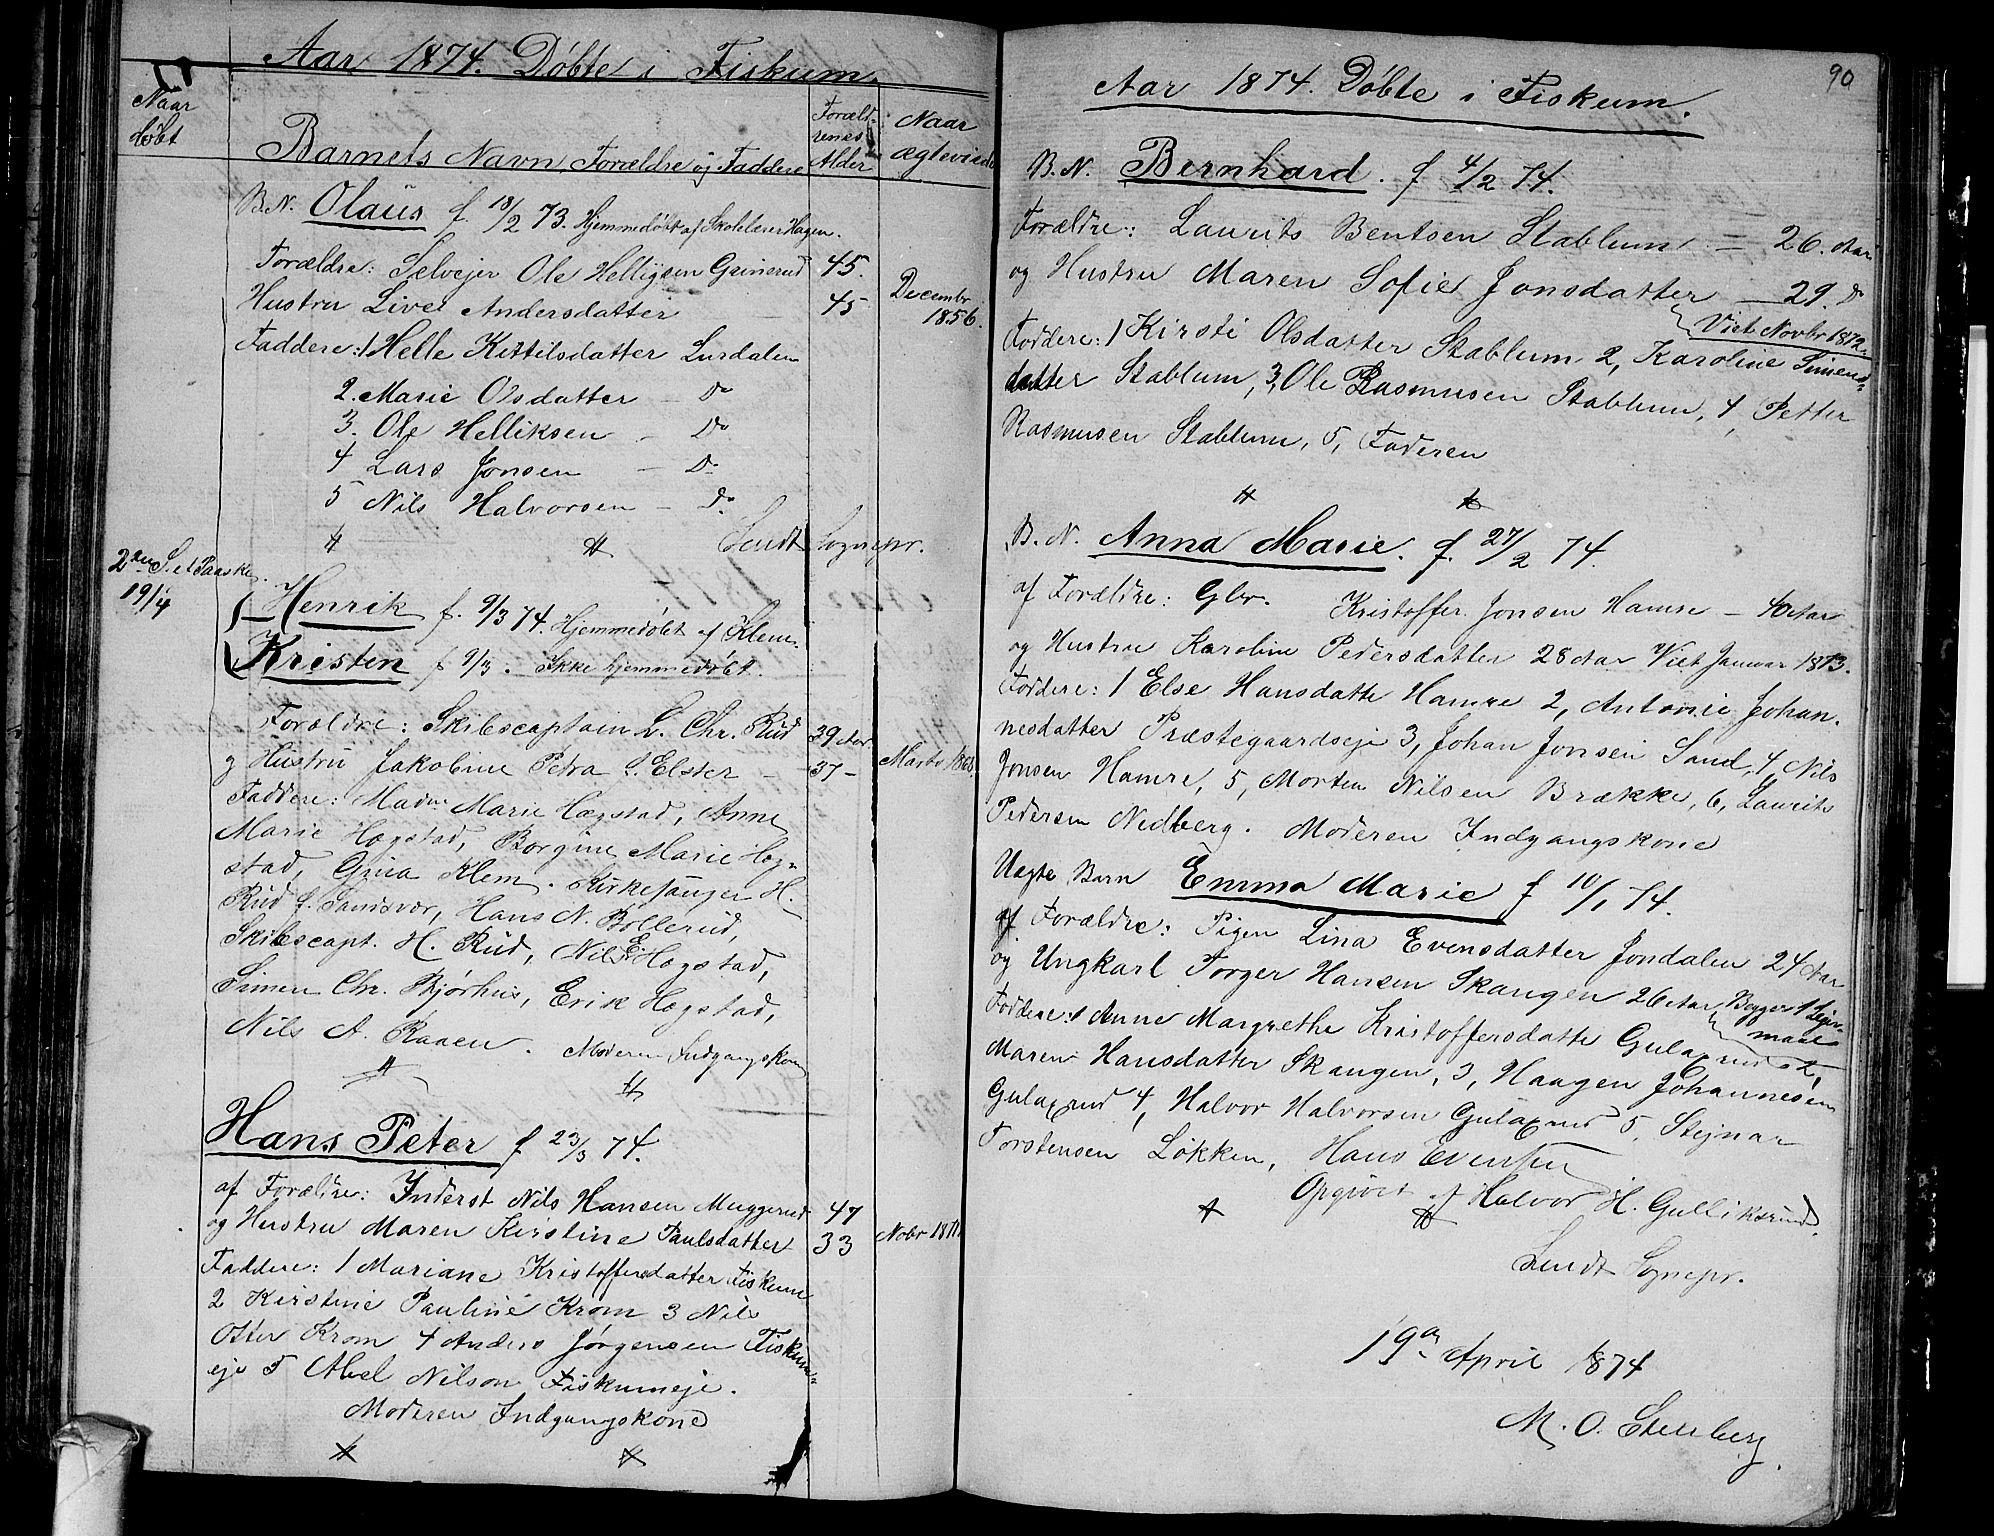 Aar 1874. Døbte i Fiskum
Naar døbt
Barnets Navn, Forældre og Faddere
Forældrenes Alder
Naar ægteviede
B.N. Olaus f. 18/2 73. Hjemmedøbt af Skolelærer Hagen.
Forældre: Selvejer Ole Helligsen Grinerud 45.
Hustru Live Andersdatter 45 Decembr 1856.
Faddere: 1 Helle Kittilsdatter Lurdalen
2. Marie Olsdatter — Do
3. Ole Helliksen — Do
4 Lars Jonsen — Do
5 Nils Halvorsen — Do
Lendt Sognepr.
2den S. e. Paaske
19/4
Henrik f. 9/3 74. Hjemmedøbt af Klem.
Kristen f 9/3. Ikke hjemmedøbt.
Forældre: Skibscaptain L. Chr. Rud 39 Aar
og Hustru Jakobine Petra f. Elster — 37 — Marts
Faddere: Madm Marie Hægstad, Anne
Marie Hægstad, Borgine Marie Hæg-
stad, Grina Klem. Kirkesanger H.
Rud f. Sandsvær, Hans N. Bollerud,
Skibscapt. H. Rud, Nils E. Hægstad,
Simen Chr. Bjørhus, Erik Hægstad,
Nils A. Raaen. Moderen Indgangskone
Hans Peter f 23/3 74.
af Forældre: Inderst Nils Hansen Muggerud 47
og Hustru Maren Kirstine Paulsdatter 33 Nobr 1871
Faddere: 1 Mariane Kristoffersdatter Fiskum
2 Kirstine Pauline Krom 3 Nils
Otter Krom 4 Anders Jørgensen Fiskum-
eje 5 Abel Nilson Fiskumeje.
Moderen Indgangskone
90
Aar 1874. Døbte i Fiskum.
B.N. Bernhard. f 4/2 74.
Forældre: Laurits Bentsen Stablum — 26. Aar
og Hustru Maren Sofie Jonsdatter — 29. Do
Viet Novbr 1872.
Faddere: 1 Kirsti Olsdatter Stablum 2, Karoline Simens-
datter Stablum, 3, Ole Rasmusen Stablum, 4, Petter
Rasmusen Stablum, 5, Faderen
B.N. Anna Marie. f. 27/2 74.
af Forældre: Gbr. Kristoffer Jonsen Hamre — 40 Aar
og Hustru Karoline Pedersdatter 28 Aar Viet Januar 1873.
Faddere: 1 Else Hansdatte Hamre 2, Antonie Johan-
nesdatter Præstegaardseje 3, Johan Jonsen Sand, 4, Nils
Jonsen Hamre, 5, Morten Nilsen Brække, 6, Laurits
Pedersen Nedberg. Moderen Indgangskone
Uægte Barn Emma Marie f 10/1 74.
af Forældre: Pigen Lina Evensdatter Jondalen 24 Aar
og Ungkarl Torger Hansen Skangen 26 Aar Begges 1 Leier-
maal
Faddere: 1 Anne Margrethe Kristoffersdatte Gulaxrud 2,
Maren Hansdatter Skangen, 3, Haagen Johannesen
Gulaxrud 4, Halvor Halvorsen Gulaxrud 5, Stejnar
Torstensen Løkken, Hans Evensen
Opgivet af Halvor H. Gulliksrud.
Lendt Sognepr.
19de April 1874
M. O. Stenberg.